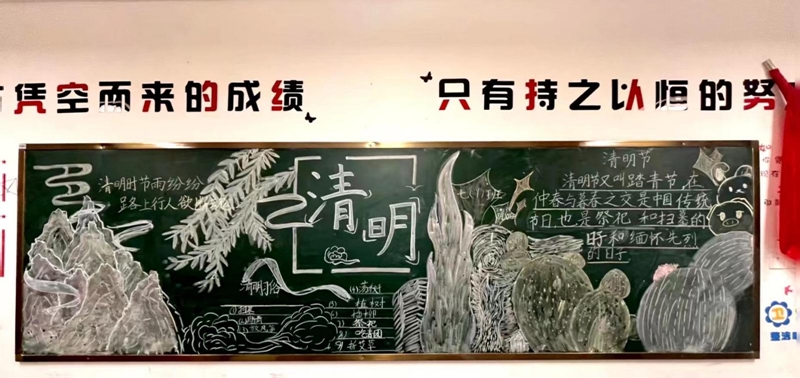 凭空而来的成绩
只有持之以恒的努
清明时节雨纷纷
路上行人欲
清明
清明习俗
植树
插柳
祭祀
吃青团
班
清明节
清明节又叫踏青节,在
仲春与暮春之交是中国传统
节日,也是祭祀和扫墓的
日和缅怀先烈
的日子
卫